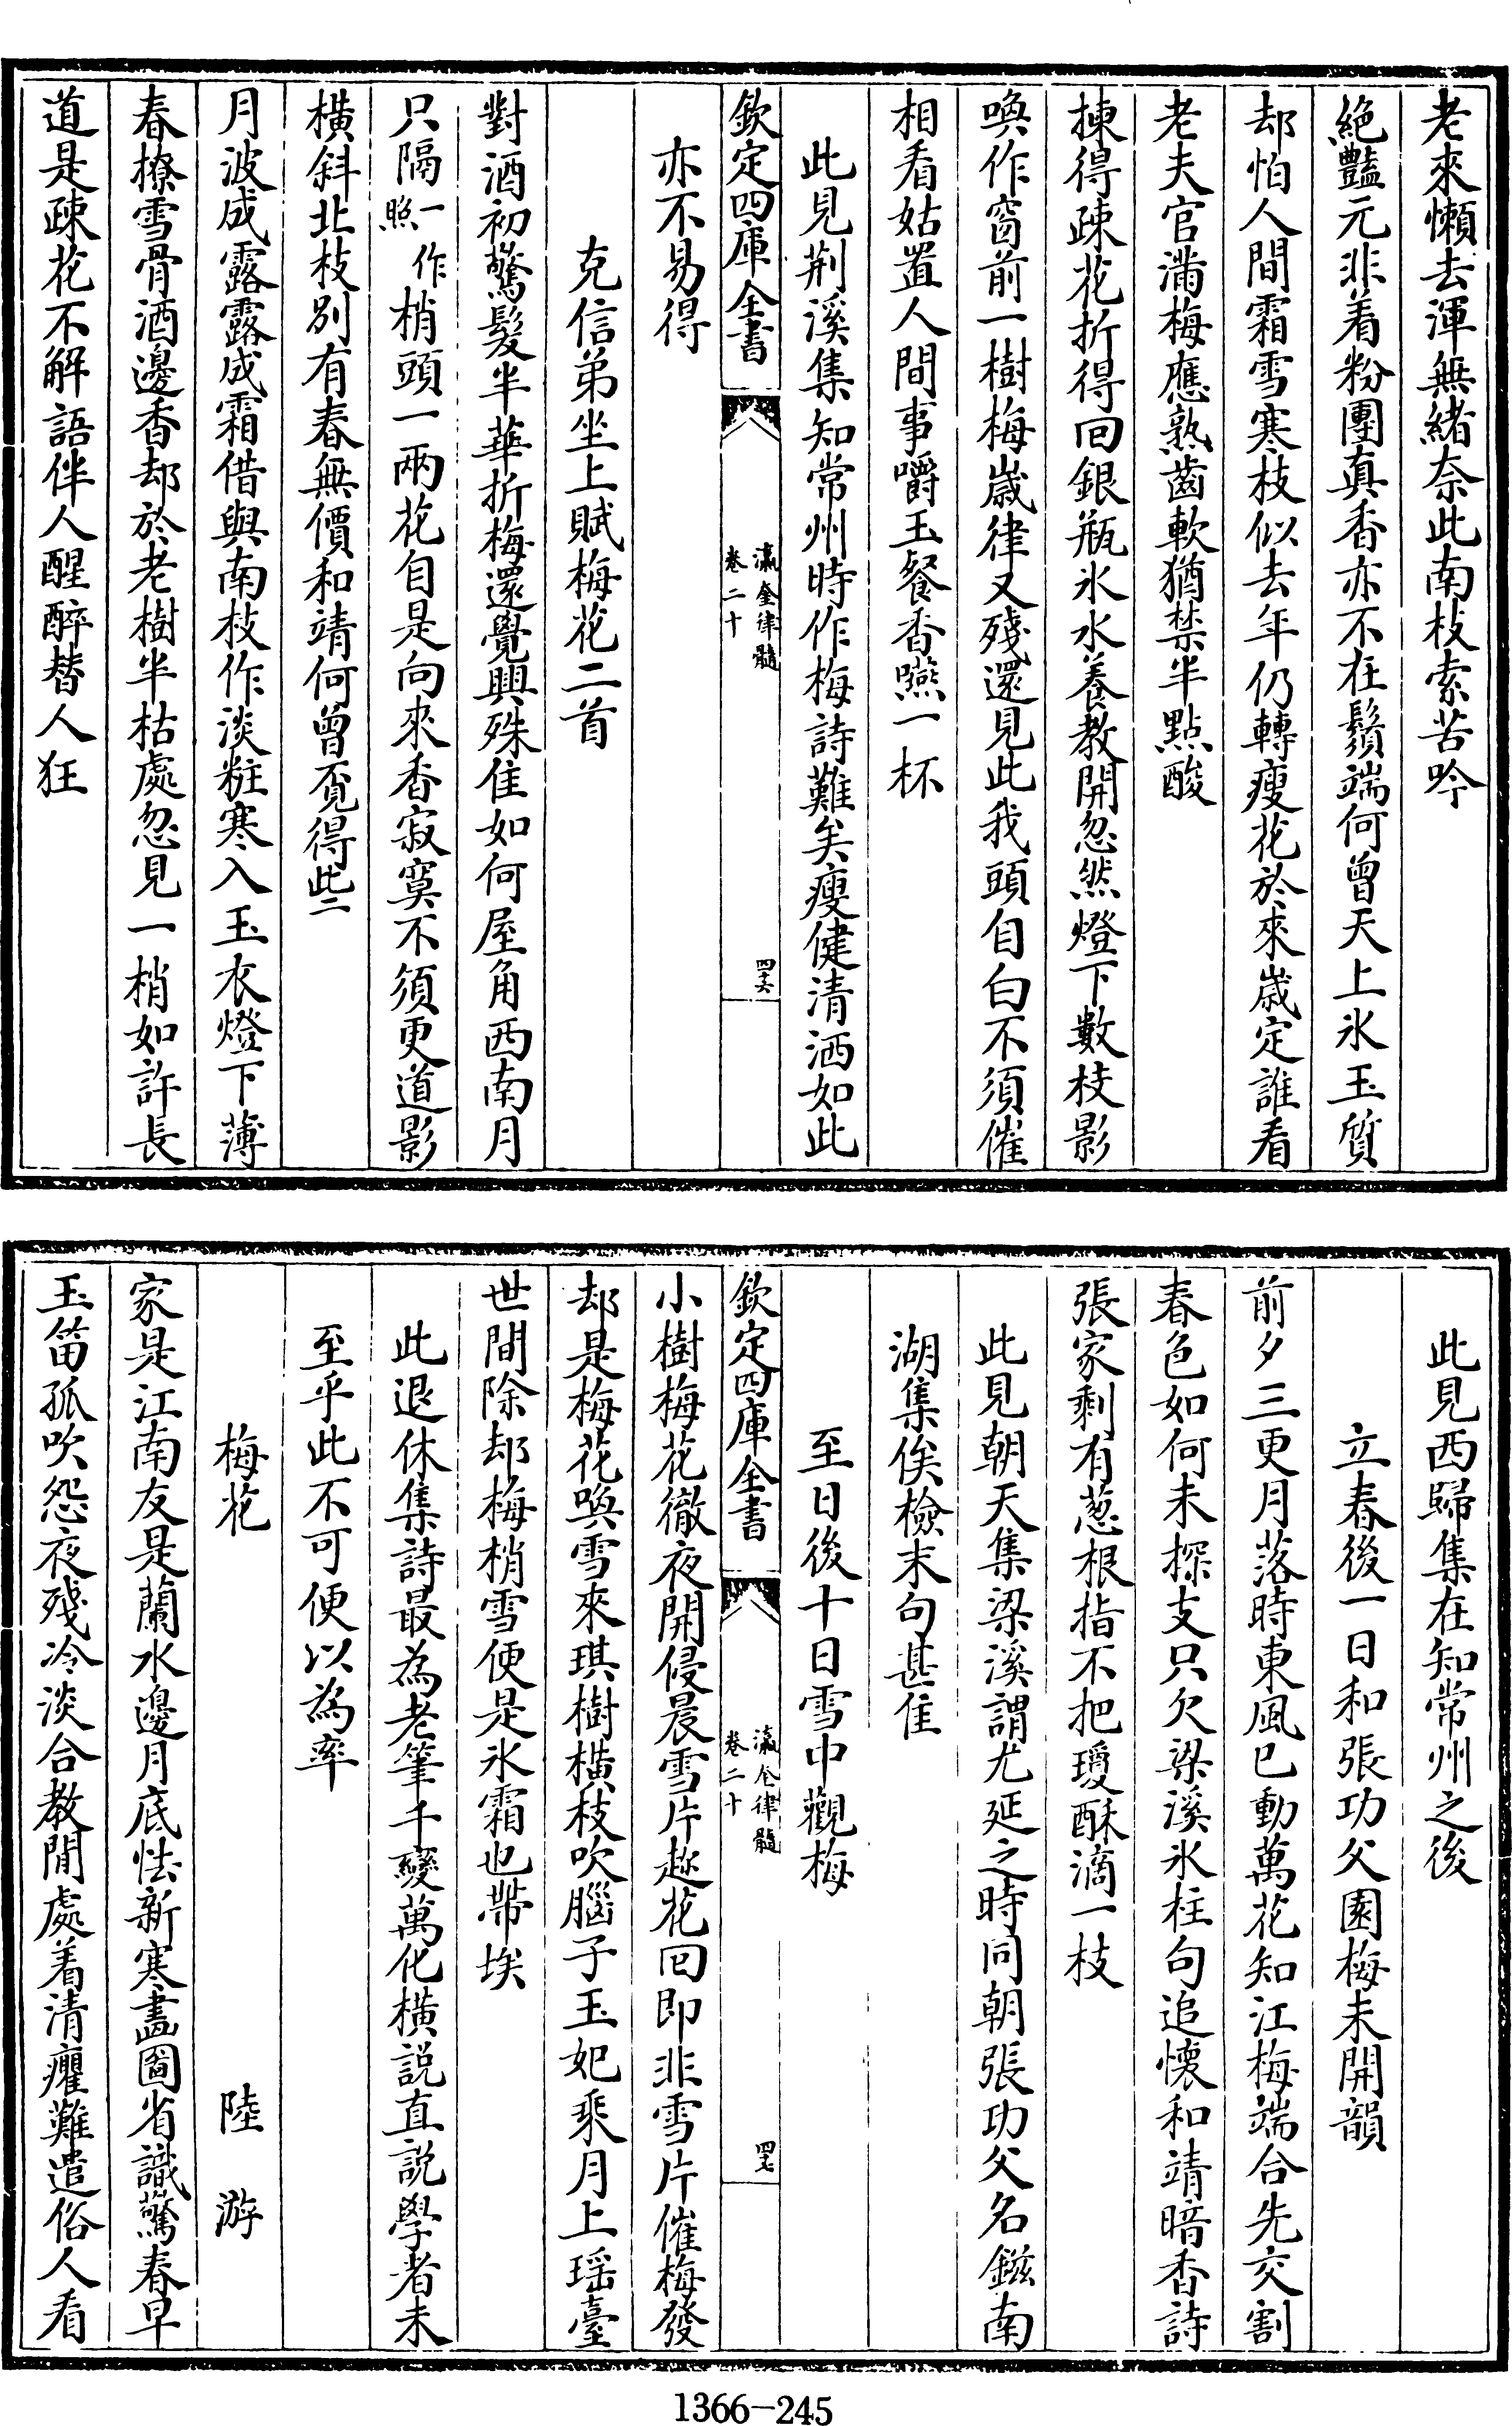 老來懶去渾無緒奈此南枝索苦吟
絶豔元非着粉團真香亦不在鬚端何曾天上氷玉質
却怕人間霜雪寒枝似去年仍轉瘦花於來嵗定誰看
老夫官滿梅應熟齒軟猶禁半點酸
揀得疎花折得回銀瓶氷水養教開忽然燈下數枝影
喚作窗前一樹梅嵗律又殘還見此我頭自白不須催
相看姑置人間事嚼玉餐香嚥一杯
此見荆溪集知常州時作梅詩難矣瘦健清洒如此
欽定四庫全書
瀛奎律髓
卷二十
四十六
亦不易得
克信弟坐上賦梅花二首
對酒初驚髮半華折梅還覺興殊佳如何屋角西南月
只隔一作照梢頭一兩花自是向來香寂寞不須更道影
横斜北枝别有春無價和靖何曾覔得些二
月波成露露成霜借與南枝作淡粧寒入玉衣燈下薄
春撩雪骨酒邊香却於老樹半枯處忽見一梢如許長
道是疎花不解語伴人醒醉替人狂
此見西歸集在知常州之後
立春後一日和張功父園梅未開韻
前夕三更月落時東風已動萬花知江梅端合先交割
春色如何未探支只欠梁溪氷柱句追懷和靖暗香詩
張家剩有葱根指不把瓊酥滴一枝
此見朝天集梁溪謂尤延之時同朝張功父名鎡南
湖集俟檢末句甚佳
至日後十日雪中觀梅
欽定四庫全書
瀛奎律髓
卷二十
四十七
小樹梅花徹夜開侵晨雪片趂花回即非雪片催梅發
却是梅花喚雪來琪樹横枝吹腦子玉妃乘月上瑶臺
世間除却梅梢雪便是氷霜也帶埃
此退休集詩最為老筆千變萬化横説直説學者未
至乎此不可便以為率
梅花 陸游
家是江南友是蘭水邊月底怯新寒畵圖省識驚春早
玉笛孤吹怨夜殘冷淡合教閒處着清癯難遣俗人看
1366-245